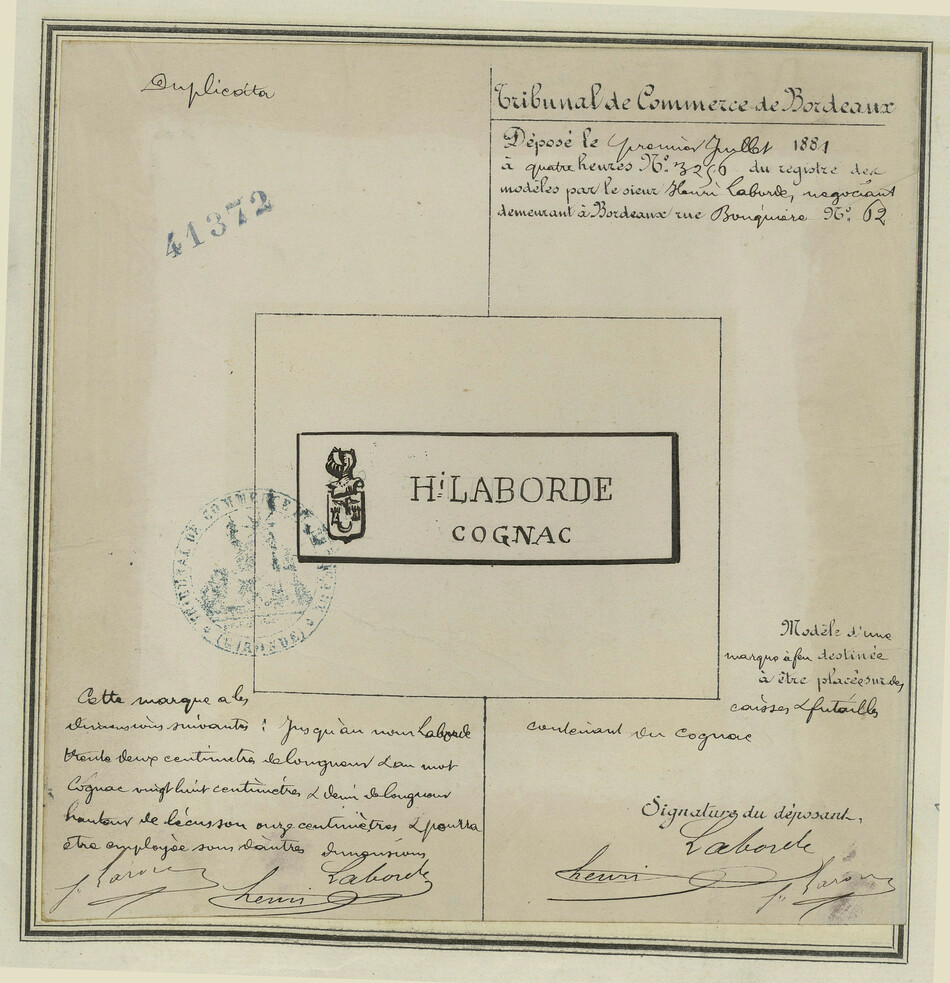 Duplicata
Tribunal de Commerce de Bordeaux
Déposé le premier Juillet 1881
à quatre heures N°. 3256 du registre des
modèles par le sieur Henri Laborde, negociant
demeurant à Bordeaux rue Bouquière N°. 62
41372
Hi LABORDE
COGNAC
TRIBUNAL DE COMMERCE DE BORDEAUX
(GIRONDE)
Modèle d'une
marque à feu destinée
à être placée sur des
caisses & futailles
contenant du Cognac
Cette marque a les
dimensions suivantes : Jusqu'au nom Laborde
trente deux centimetres de longueur & au mot
Cognac vingt huit centimètres & demi de longueur
hauteur de l'écusson onze centimètres & pourra
être employée sous d'autres dimensions
Henri Laborde
Signature du déposant,
Laborde
Henri